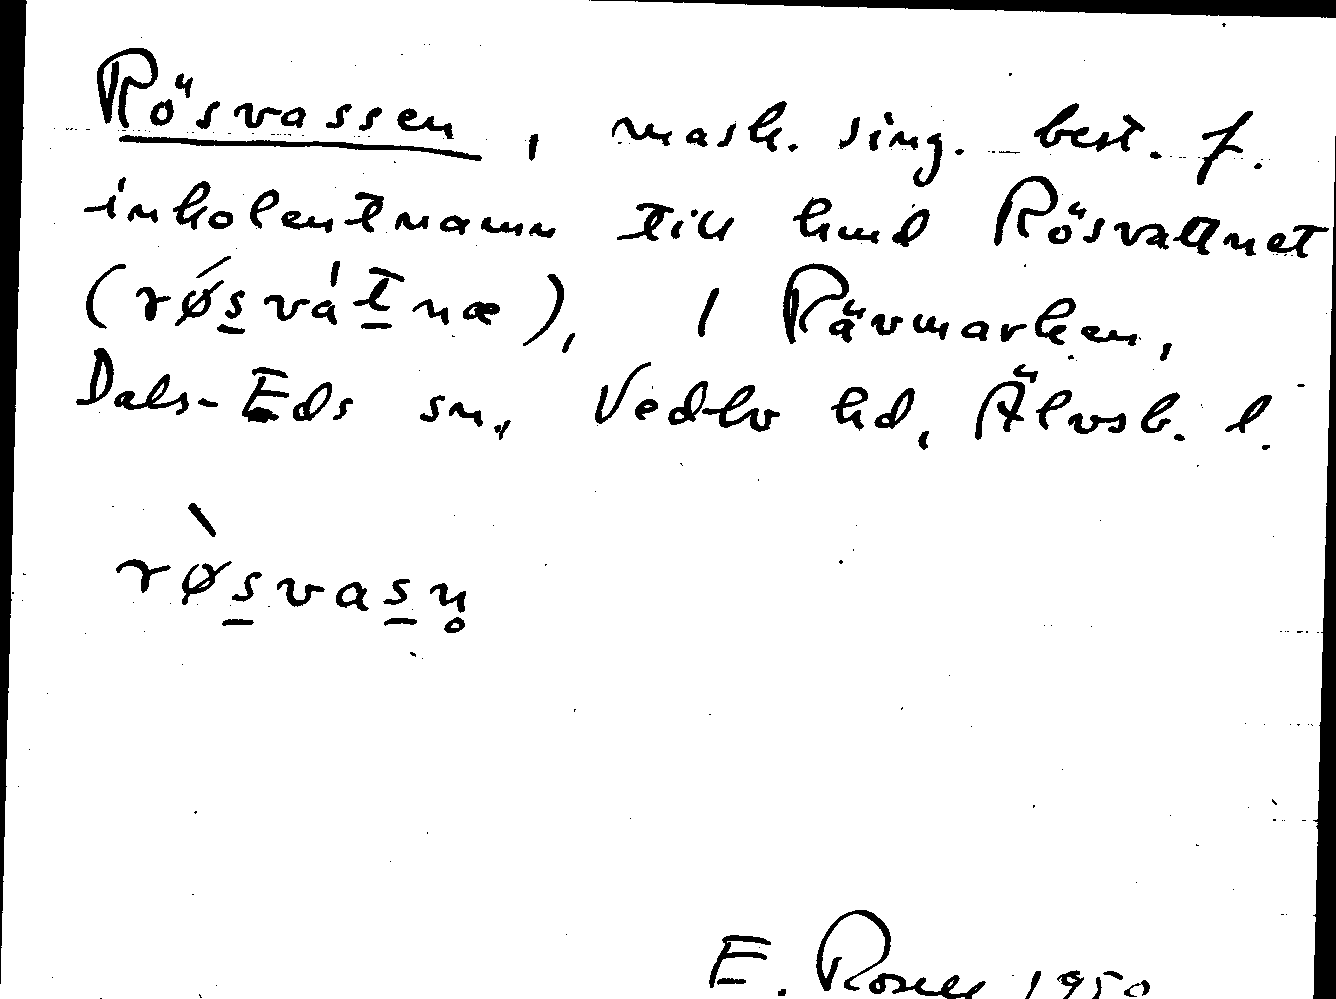 Rösvassen, mask. sing. best. f.
inkolentnamn till hmd Rösvattnet
(røsvátnæ), i Rävmarken,
Dals-Eds sn., Vedbo hd, Älvsb. l.
røsvasn̥
E. Rosell 1950